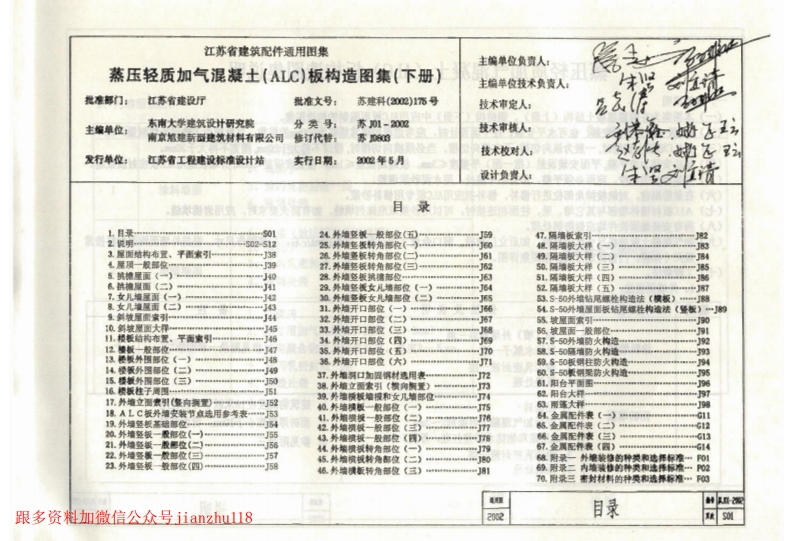 江苏省建筑配件通用图集
蒸压轻质加气混凝土(ALC)板构造图集(下册)
批准部门： 江苏省建设厅 批准文号： 苏建科(2002)175号
主编单位： 东南大学建筑设计研究院 分 类 号： 苏 J01-2002
南京旭建新型建筑材料有限公司 修订代替： 苏 J0603
发行单位： 江苏省工程建设标准设计站 实行日期： 2002 年 5 月
主编单位负责人：
主编单位技术负责人：
技术审定人：
技术审核人：
技术校对人：
设计负责人：
目 录
1. 目录 S01
2. 说明 S02-S12
3. 屋面结构布置、平面索引 J38
4. 屋顶一般部位 J39
5. 挑檐屋面（一） J40
6. 挑檐屋面（二） J41
7. 女儿墙屋面（一） J42
8. 女儿墙屋面（二） J43
9. 斜坡屋面索引 J44
10. 斜坡屋面大样 J45
11. 楼板结构布置、平面索引 J46
12. 楼板一般部位 J47
13. 楼板外围部位（一） J48
14. 楼板外围部位（二） J49
15. 楼板外围部位（三） J50
16. 楼板柱子周围 J51
17. 外墙立面索引(竖向搁置) J52
18. ALC板外墙安装节点选用参考表 J53
19. 外墙竖板基础部位 J54
20. 外墙竖板一般部位(一) J55
21. 外墙竖板一般部位(二) J56
22. 外墙竖板一般部位(三) J57
23. 外墙竖板一般部位(四) J58
24. 外墙竖板一般部位(五) J59
25. 外墙竖板转角部位(一) J60
26. 外墙竖板转角部位(二) J61
27. 外墙竖板转角部位(三) J62
28. 外墙竖板挑檐部位 J63
29. 外墙竖板女儿墙部位（一） J64
30. 外墙竖板女儿墙部位（二） J65
31. 外墙开口部位（一） J66
32. 外墙开口部位（二） J67
33. 外墙开口部位（三） J68
34. 外墙开口部位（四） J69
35. 外墙开口部位（五） J70
36. 外墙开口部位（六） J71
37. 外墙洞口加固钢材选用表 J72
38. 外墙立面索引（横向搁置） J73
39. 外墙横板墙根和女儿墙部位 J74
40. 外墙横板一般部位（一） J75
41. 外墙横板一般部位（二） J76
42. 外墙横板一般部位（三） J77
43. 外墙横板一般部位（四） J78
44. 外墙横板转角部位（一） J79
45. 外墙横板转角部位（二） J80
46. 外墙横板转角部位（三） J81
47. 隔墙板索引 J82
48. 隔墙板大样（一） J83
49. 隔墙板大样（二） J84
50. 隔墙板大样（三） J85
51. 隔墙板大样（四） J86
52. 隔墙板大样（五） J87
53. S-50外墙钻尾螺栓构造法（横板） J88
54. S-50外墙屋面板钻尾螺栓构造法（竖板） J89
55. 坡屋面索引 J90
56. 坡屋面一般部位 J91
57. S-50外墙防火构造 J92
58. S-50隔墙防火构造 J93
59. S-50钢柱防火构造 J94
60. S-50板钢梁防火构造 J95
61. 阳台平面图 J96
62. 阳台大样 J97
63. 雨蓬大样 J98
64. 金属配件表（一） G11
65. 金属配件表（二） G12
66. 金属配件表（三） G13
67. 金属配件表（四） G14
68. 附录一 外墙装修的种类和选择标准 F01
69. 附录二 内墙装修的种类和选择标准 F02
70. 附录三 密封材料的种类和选择标准 F03
通用图
2002
目录
编号 苏J01-2002
页次 S01
跟多资料加微信公众号jianzhu118